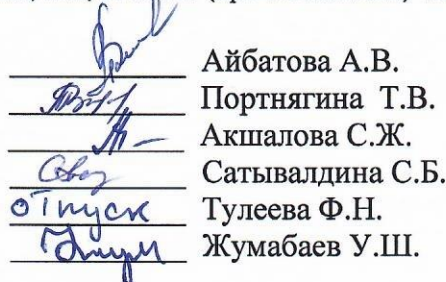 Айбатова А.В.
Портнягина Т.В.
Акшалова С.Ж.
Сатывалдина С.Б.
отпуск Тулеева Ф.Н.
Жумабаев У.Ш.